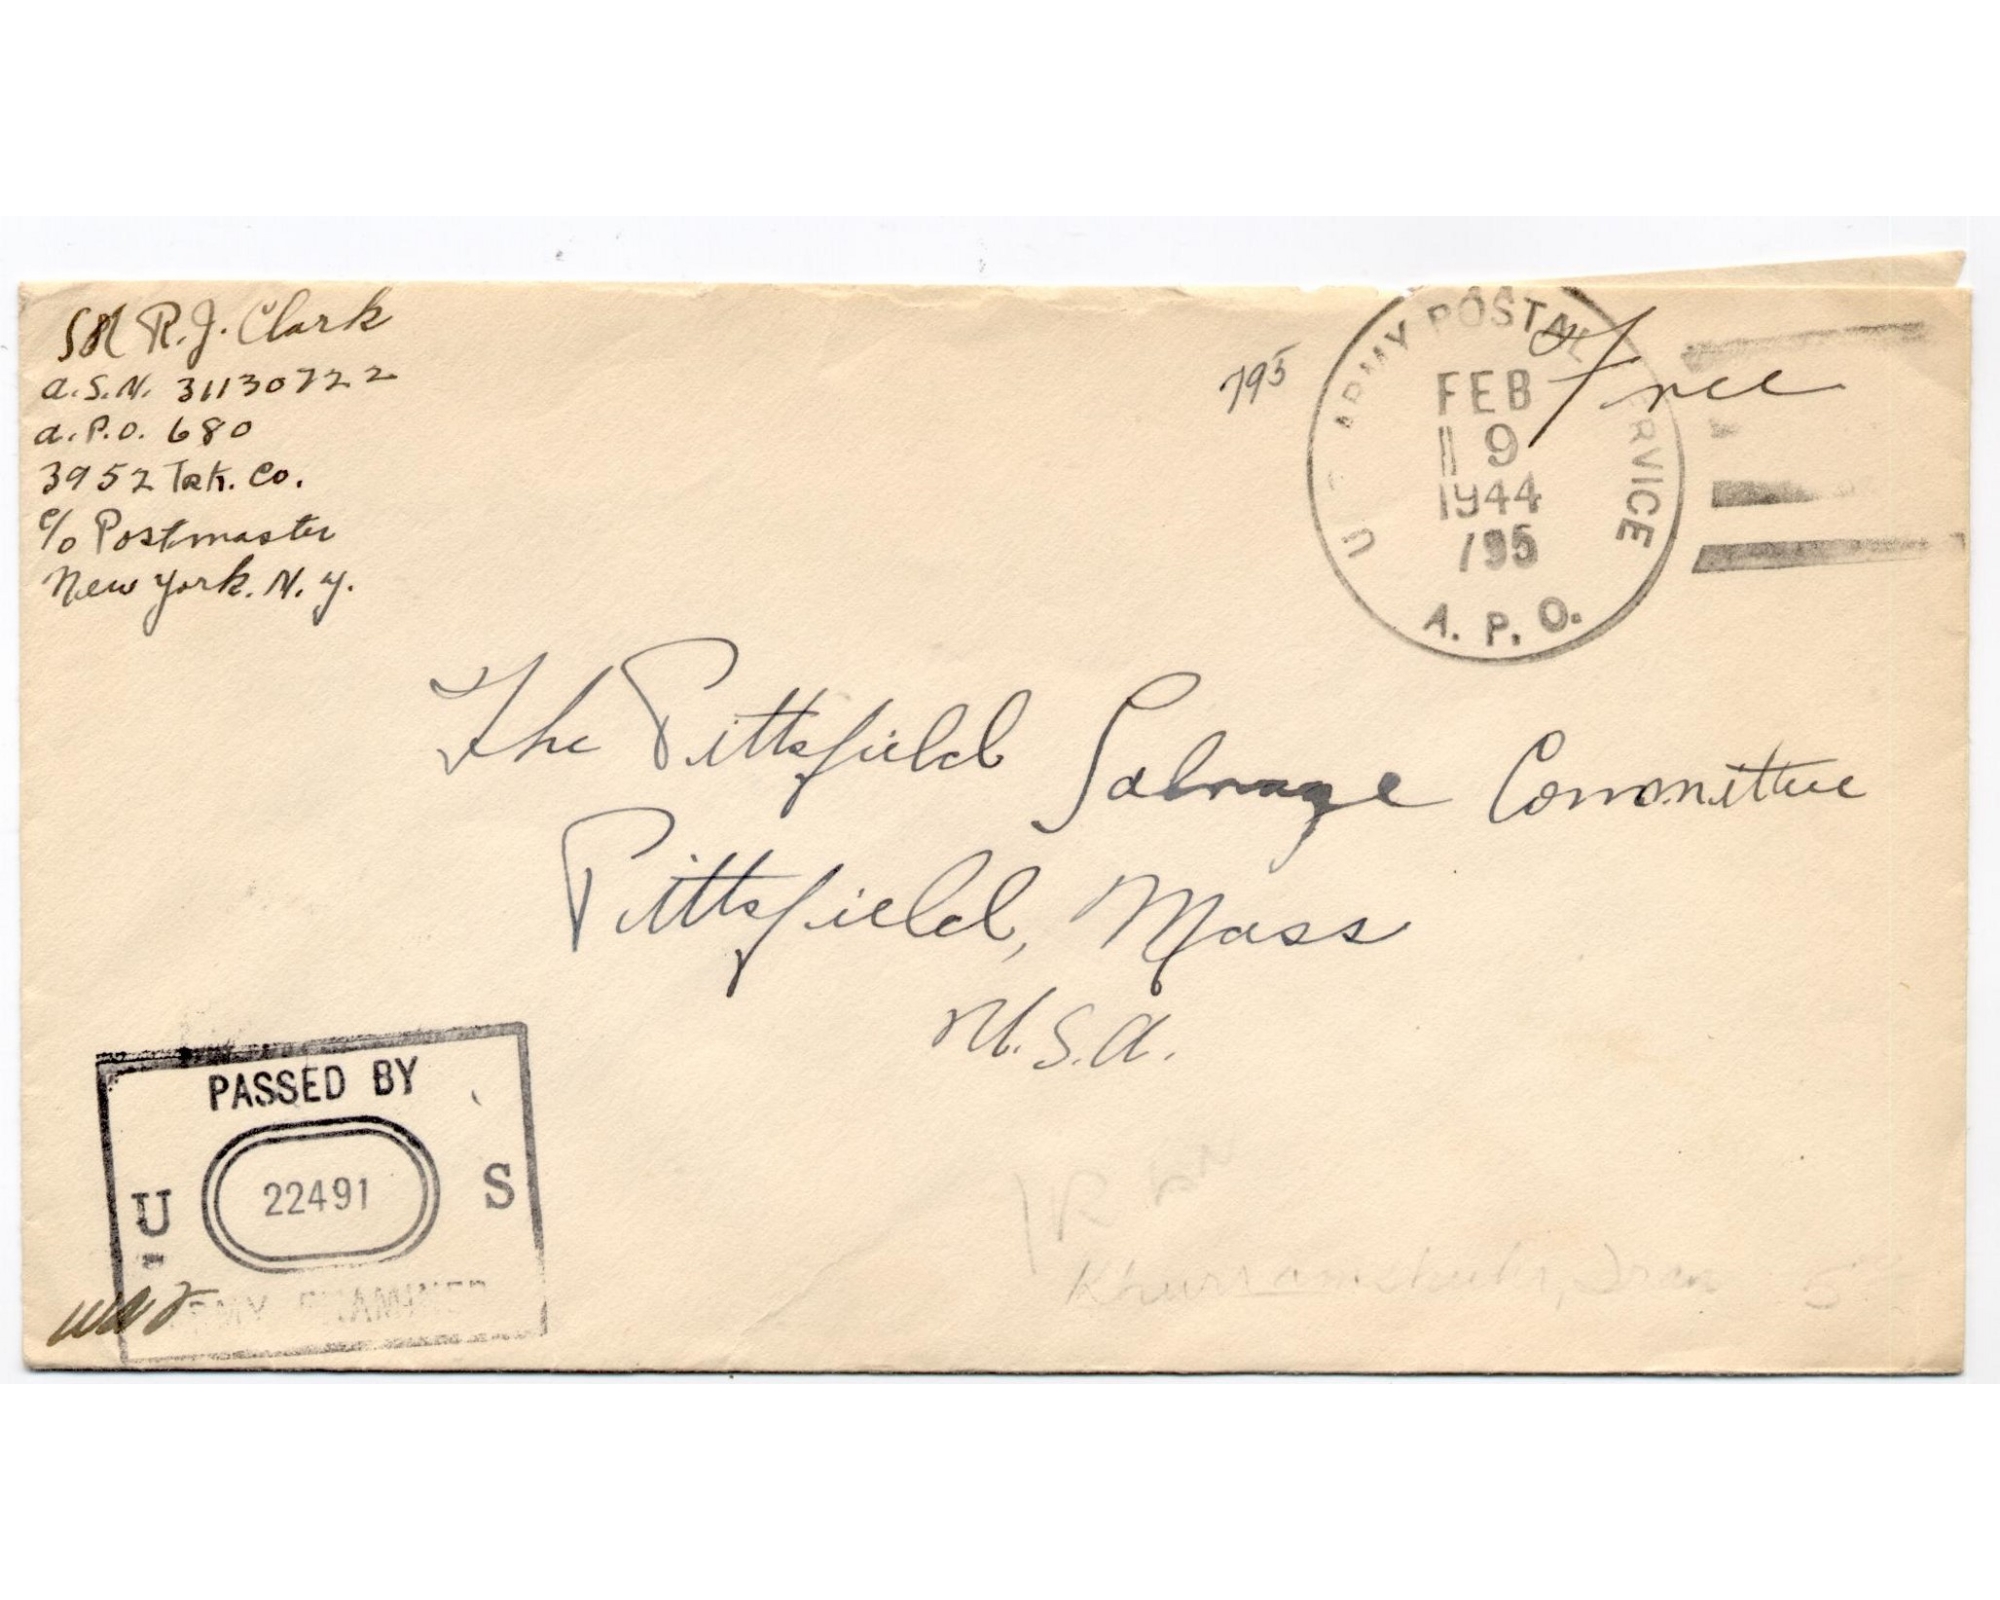 R.J. Clark
a.S.N. 31130722
a.P.O. 680
3952 Trk. Co.
c/o Postmaster
New York. N.Y.
795
Free
U.S. ARMY POSTAL SERVICE
FEB
9
1944
795
A.P.O.
The Pittsfield Salvage Committee
Pittsfield, Mass
U.S.A.
PASSED BY
U 22491 S
ARMY EXAMINER
IRAN
Khurramshahr, Iran 5